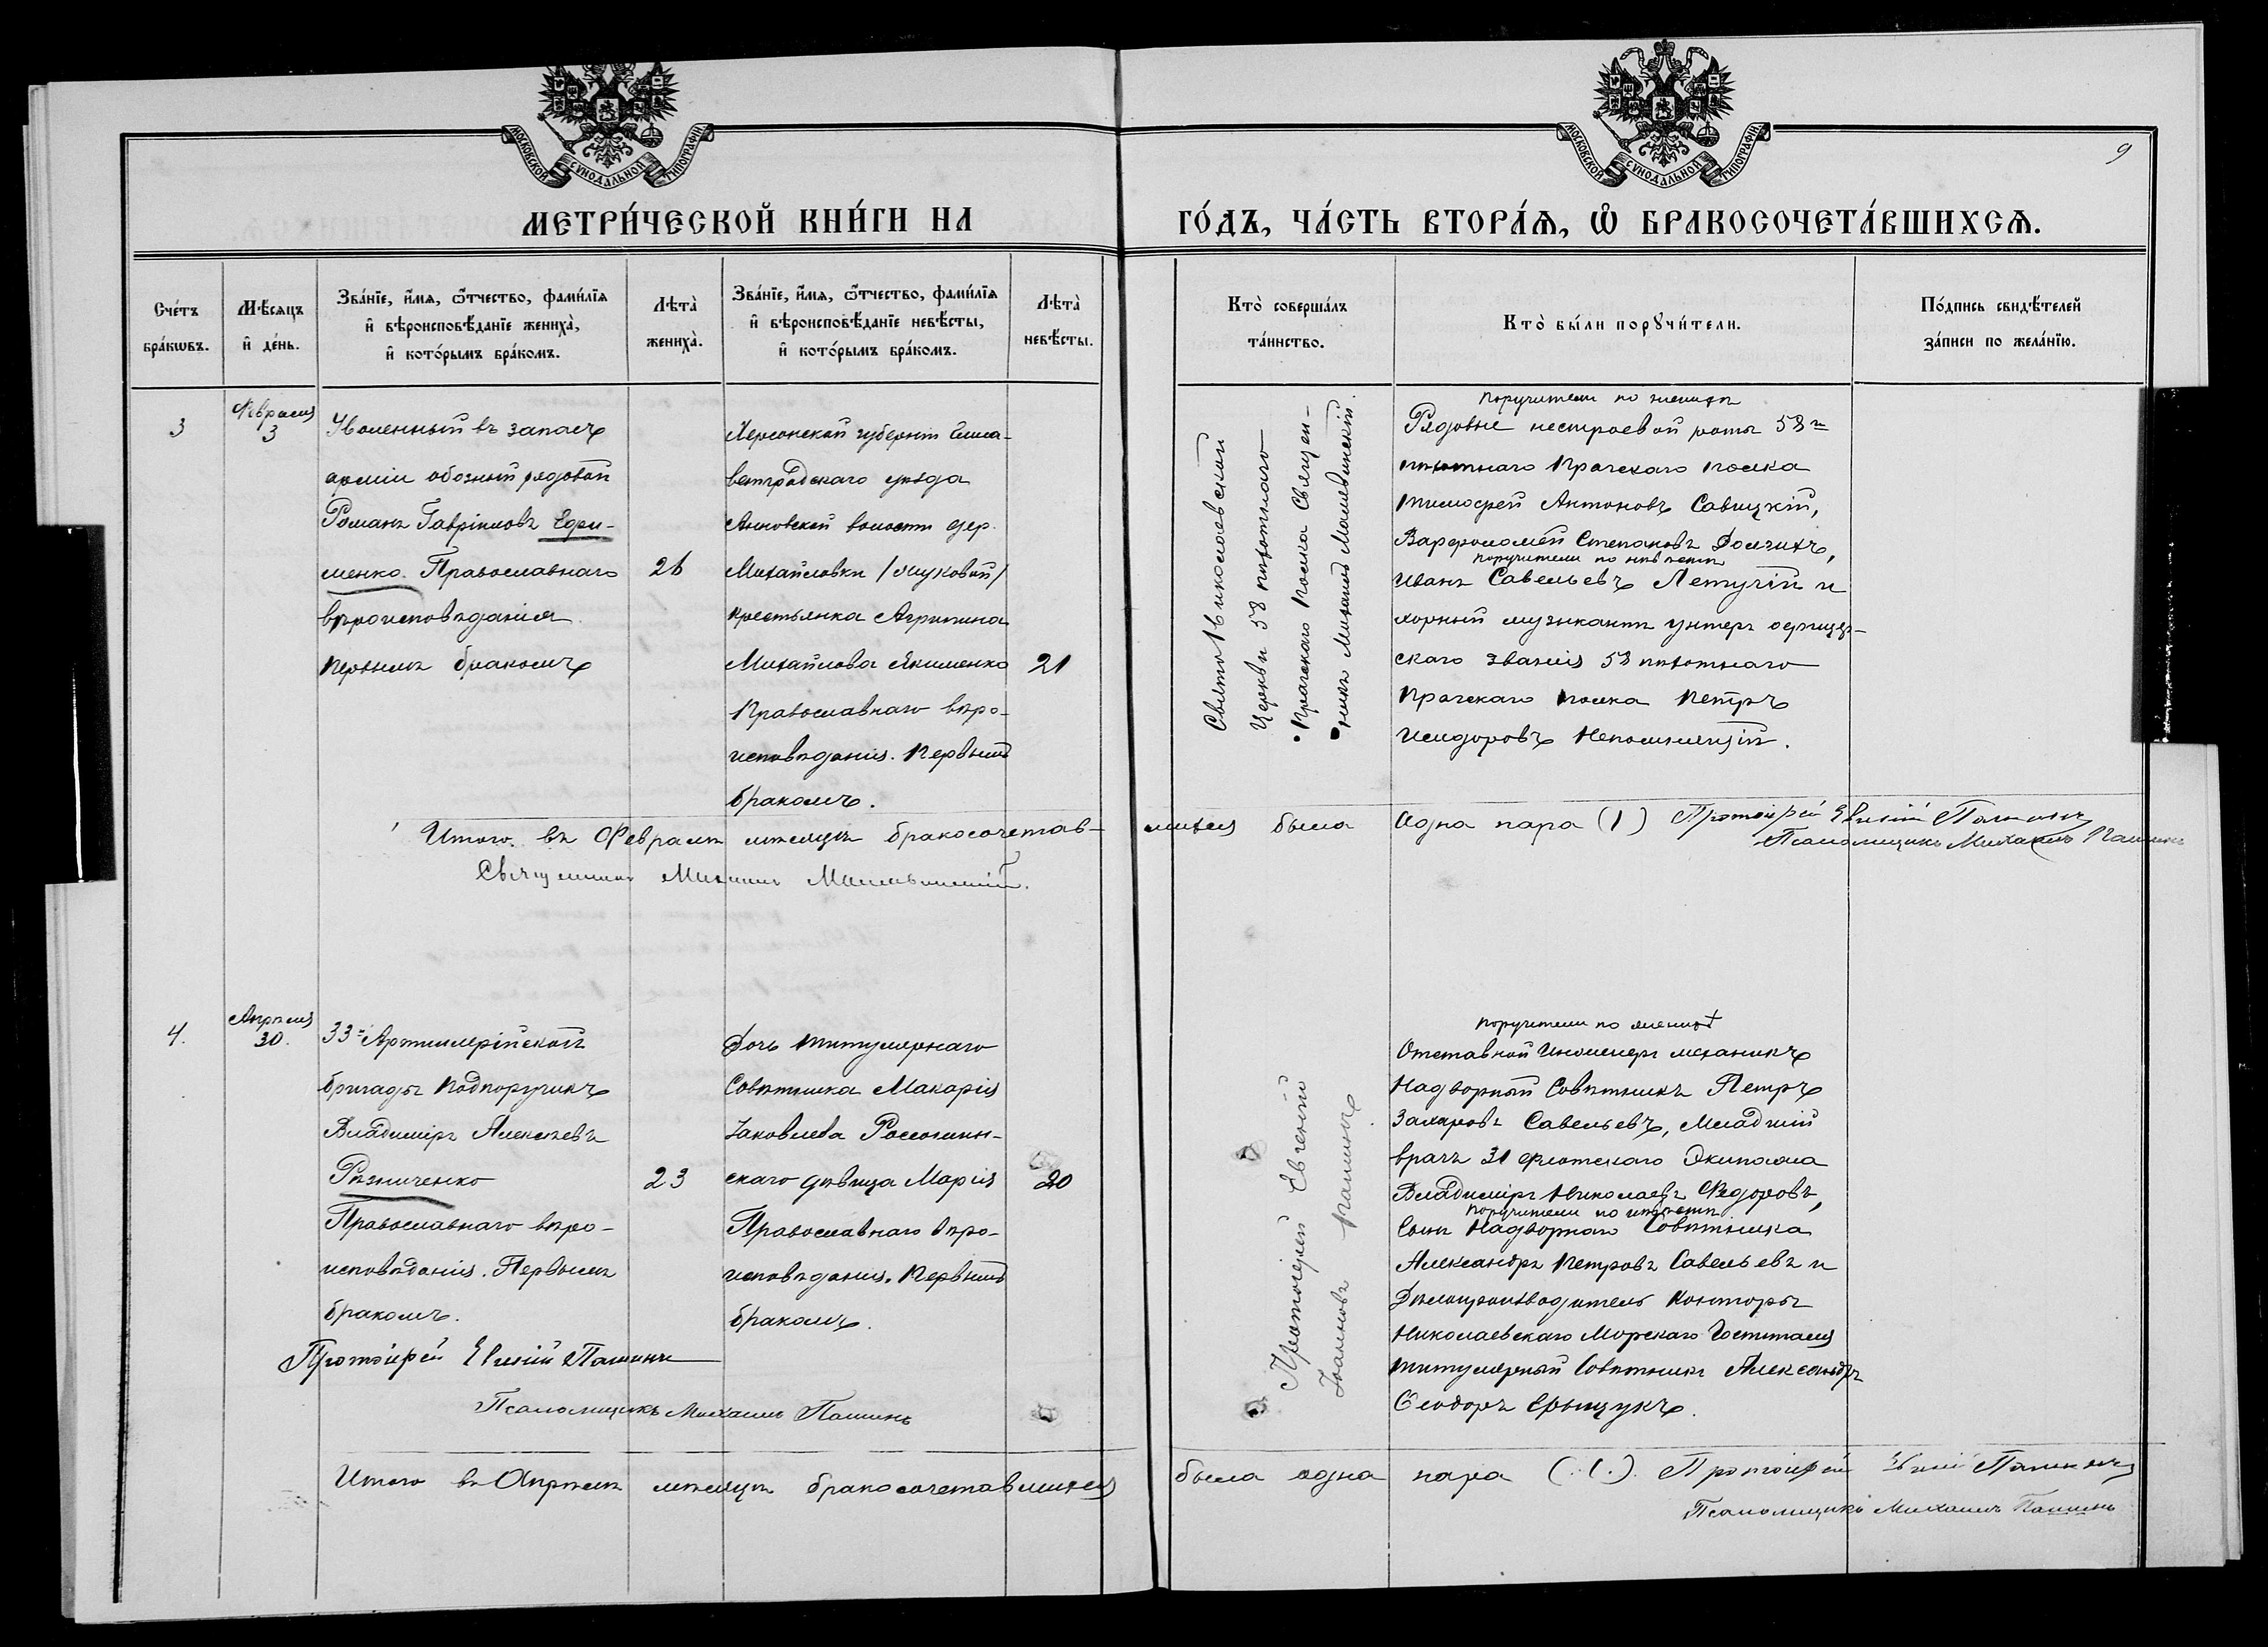 МОСКОВСКОЙ СѴНОДАЛЬНОЙ ТИПОГРАФІИ
МОСКОВСКОЙ СѴНОДАЛЬНОЙ ТИПОГРАФІИ
9
МЕТРИ́ЧЕСКОЙ КНИ́ГИ НА
ГО́ДЪ, ЧА́СТЬ ВТОРА́Ѧ, Ѽ БРАКОСОЧЕТА́ВШИХСѦ.
Сче́тъ
бра́кѡвъ.
Мѣ́сяцъ
и҆ де́нь.
Зва́нїе, и҆́мѧ, ѻ҆́тчество, фами́лїѧ
и҆ вѣроисповѣ́данїе жениха̀,
и҆ кото́рымъ бра́комъ.
Лѣта̀
жениха̀.
Зва́нїе, и҆́мѧ, ѻ҆́тчество, фами́лїѧ
и҆ вѣроисповѣ́данїе невѣ́сты,
и҆ кото́рымъ бра́комъ.
Лѣта̀
невѣ́сты.
Кто̀ соверша́лъ
та́инство.
Кто̀ бы́ли порꙋчи́тели.
По́дпись свидѣ́телей
за́писи по жела́нїю.
3
Февраля
3
Уволенный въ запасъ
арміи обозный рядовой
Романъ Гавріиловъ Ефи-
менко. Православнаго
вѣроисповѣданія
первымъ бракомъ
26
Херсонской губерніи Елиса-
ветградскаго уѣзда
Анновской волости дер.
Михайловки
крестьянка Агрипина
Михайлова Якименко
Православнаго вѣро-
исповѣданія. Первымъ
бракомъ.
21
Свято Николаевской
Церкви 58 пѣхотнаго
Прагскаго полка Священ-
никъ Михаилъ
поручители по женихѣ
Рядовые нестроевой роты 58го
пѣхотнаго Прагскаго полка
Тимофей Антоновъ Савицкій,
Варфоломей Степановъ Долгихъ,
поручители по невѣстѣ
Иванъ Савельевъ Летучій и
хорный музыкантъ унтеръ офицер-
скаго званія 58 пѣхотнаго
Прагскаго полка Петръ
Исидоровъ Непомнящій.
Итого въ Февралѣ мѣсяцѣ бракосочетав-
шихся была одна пара (1) Протоіерей Евгеній Пашинъ
Псаломщикъ Михаилъ Пашинъ
Священникъ Михаилъ
4.
Апрѣля
30.
33й Артиллерійской
бригады Подпоручикъ
Владиміръ Алексѣевъ
Рѣзниченко
Православнаго вѣро-
исповѣданія. Первымъ
бракомъ.
23
Дочь Титулярнаго
Совѣтника Макарія
Іаковлева
скаго дѣвица Марія
Православнаго вѣро-
исповѣданія. Первымъ
бракомъ.
20
Протоіерей Евгеній
Іоанновъ Пашинъ
поручители по женихѣ
Отставной Инженеръ механикъ
Надворный Совѣтникъ Петръ
Захаровъ Савельевъ, Младшій
врачъ 31 флотскаго Экипажа
Владиміръ Николаевъ Ѳедоровъ,
поручители по невѣстѣ
Сынъ Надворнаго Совѣтника
Александръ Петровъ Савельевъ и
Дѣлопроизводитель Конторы
Николаевскаго Морскаго Госпиталя
титулярный Совѣтникъ Александръ
Протоіерей Евгеній Пашинъ
Псаломщикъ Михаилъ Пашинъ
Итого въ Апрѣлѣ мѣсяцѣ бракосочетавшихся
была одна пара (1). Протоіерей Евгеній Пашинъ
Псаломщикъ Михаилъ Пашинъ